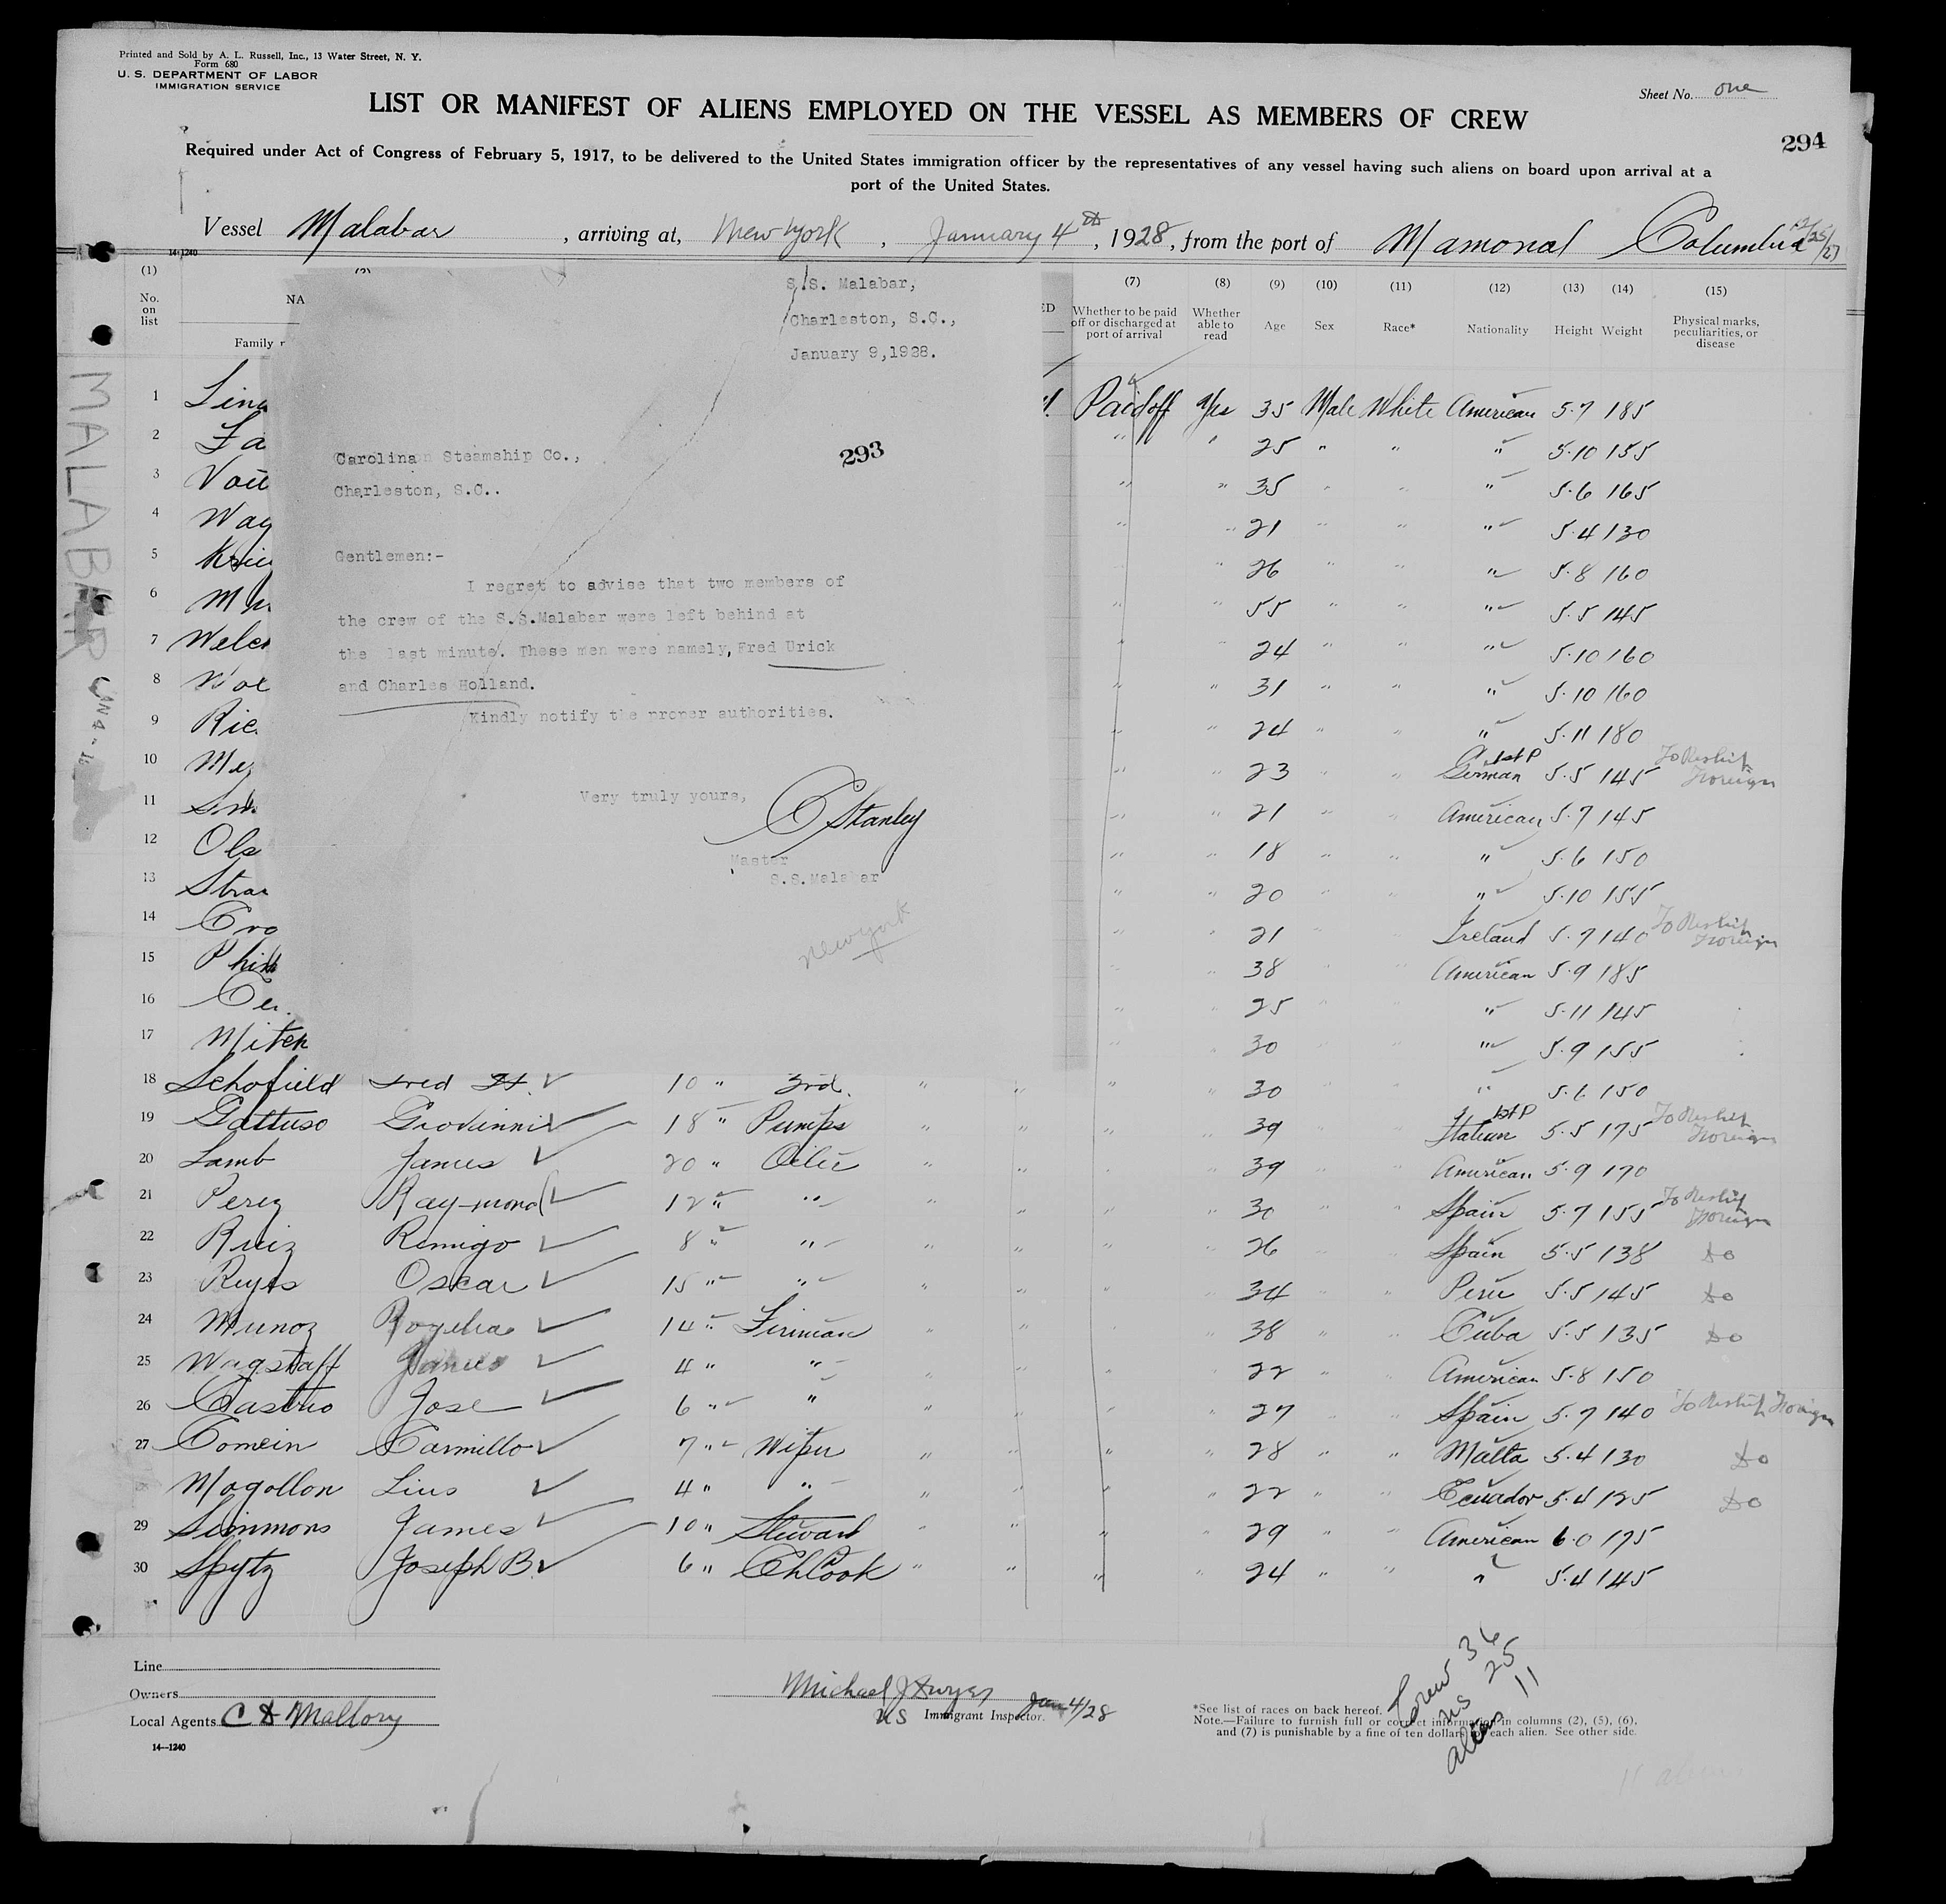 Printed and Sold by A. L. Russell, Inc., 13 Water Street, N. Y.
Form 680
U. S. DEPARTMENT OF LABOR
IMMIGRATION SERVICE
Sheet No. one
LIST OR MANIFEST OF ALIENS EMPLOYED ON THE VESSEL AS MEMBERS OF CREW
294
Required under Act of Congress of February 5, 1917, to be delivered to the United States immigration officer by the representatives of any vessel having such aliens on board upon arrival at a
port of the United States.
Vessel Malabar, arriving at, New York, January 4th, 1928, from the port of Mamonal Columbia 12/25/27
14-1240
MALABAR
S.S. Malabar,
Charleston, S.C.,
January 9,1928.
293
Carolina Steamship Co.,
Charleston, S.C..
Gentlemen:-
I regret to advise that two members of
the crew of the S.S.Malabar were left behind at
the last minute. These men were namely, Fred Urick
and Charles Holland.
Kindly notify the proper authorities.
Very truly yours,
C Stanley
Master
S.S.Malabar
New York
(1) (7) (8) (9) (10) (11) (12) (13) (14) (15)
No. on list NA Family ED Whether to be paid off or discharged at port of arrival Whether able to read Age Sex Race* Nationality Height Weight Physical marks, peculiarities, or disease
1 Paid off Yes 35 Male White American 5.7 185
2 Fa " " 25 " " " 5.10 155
3 " " 35 " " " 5.6 165
4 Wag " " 21 " " " 5.4 130
5 " 26 " " " 5.8 160
6 " " 55 " " " 5.5 145
7 Welc " " 24 " " " 5.10 160
8 " " 31 " " 5.10 160
9 Ric " " 24 " " " 5.11 180
10 Mey " " 23 " " German 1st P 5.5 145 To Reship Foreign
11 " " 21 " " American 5.7 145
12 Ols " " 18 " " " 5.6 150
13 Stra " " 20 " " " 5.10 155
14 Cro " " 21 " " Ireland 5.7 140 To Reship Foreign
15 Phil " 38 American 5.9 185
16 " 25 " 5.11 145
17 Mitch 30 " 5.9 155
18 Schofield Fred H. 10 " 3rd. " " " 30 " 5.6 150
19 Gattuso Giovanni 18 " Pumps " " " " 39 Italian 1st P 5.5 175 To Reship Foreign
20 Lamb James 20 " Oiler " " " " 39 American 5.9 170
21 Perez Raymond 12 " " " " " " 30 " Spain 5.7 155 To Reship Foreign
22 Ruiz Remigo 8 " " " " " " 26 Spain 5.5 138 do
23 Reyes Oscar 15 " " " " " " 34 " " Peru 5.5 145 do
24 Munoz Rogelia 14 " Fireman " " " " 38 " " Cuba 5.5 135 do
25 Wagstaff James 4 " " " " " 22 " " American 5.8 150
26 Castro Jose 6 " " " " " " 27 " " Spain 5.7 140 To Reship Foreign
27 Comein Carmillo 7 " Wiper " " " " 28 " " Malta 5.4 130 do
Mogollon Lius 4 " " " " " " 22 " " Ecuador 5.4 125 do
29 Simmons James 10 " Steward " " " " 29 " " American 6.0 175
30 Spytz Joseph B. 6 " Ch Cook " " " " 24 " " " 5.4 145
Line
Owners
Local Agents C D Mallory
14—1240
Michael J Dwyer Jan 4/28
US Immigrant Inspector.
*See list of races on back hereof.
Note.—Failure to furnish full or correct information in columns (2), (5), (6),
and (7) is punishable by a fine of ten dollars for each alien. See other side.
Crew 36
US 25
aliens 11